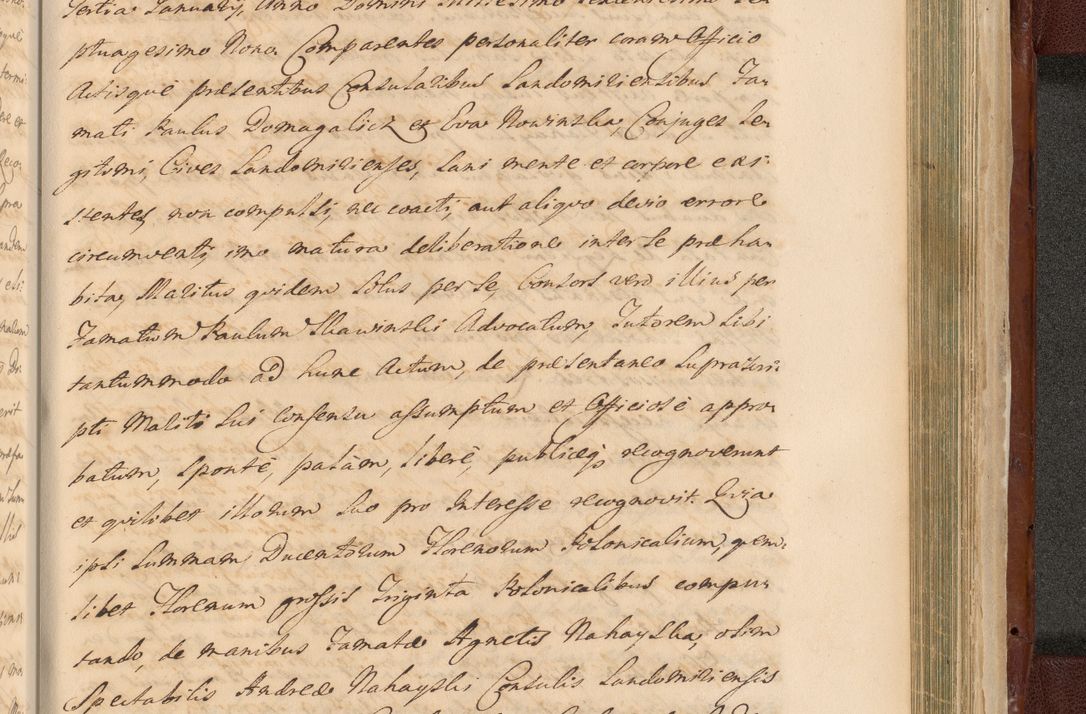 Tertia January, Anno Domini Millesimo Septingentesimo Se-
ptuagesimo Nono. Comparentes personaliter coram Officio
Actisque præsentibus Consularibus Sandomiriensibus Fa-
mati Paulus Domagalicz et Eva Nowinska, Conjuges Le-
gitimi, Cives Sandomirienses, Sani mente et corpore exi-
stentes, non compulsi, nec coacti, aut aliquo devio errore
circumventi, imo matura deliberatione inter se præha-
bita, Maritus quidem Solus per se, Consors vero illius per
Famatum Paulum Skawinski Advocatum, Tutorem Sibi
tantummodo ad hunc Actum, de præsentaneo Suprascri-
pti Mariti Sui Consensu assumptum et Officiosè appro-
batum, Spontè, palàm, liberè, publiceq; recognoverunt
et quilibet illorum Suo pro Interesse recognovit. Quia
ipsi Summam Ducentorum Florenorum Polonicalium, quem-
libet Florenum grossis Triginta Polonicalibus compu-
tando, de manibus Famatæ Agnetis Nahayska, olim
Spectabilis Andreæ Nahayski Consulis Sandomiriensis